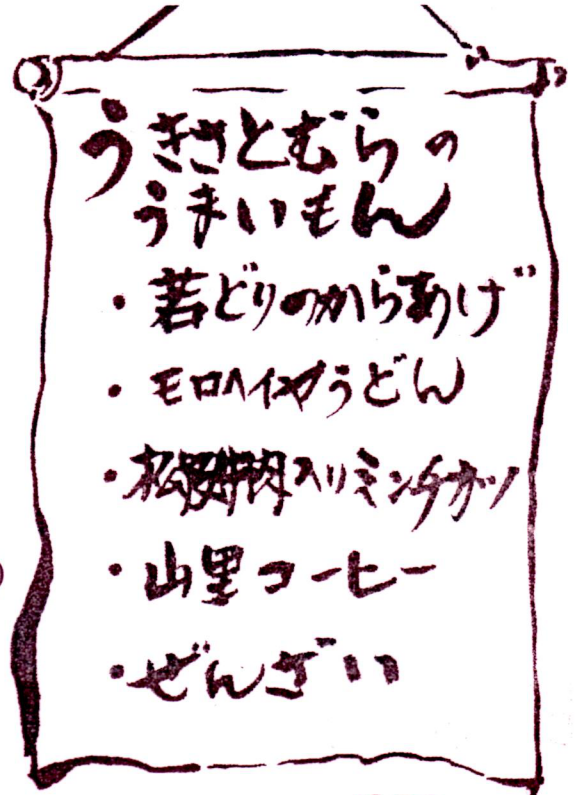 うきさとむらの
うまいもん
・若どりのからあげ
・モロヘイヤうどん
・松阪牛肉入りミンチカツ
・山里コーヒー
・ぜんざい